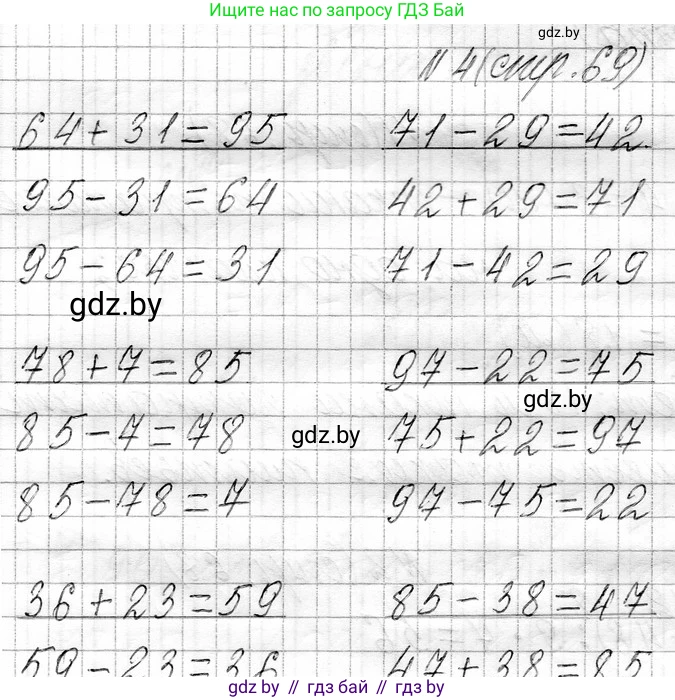 Ищите нас по запросу ГДЗ Бай
gdz.by
№4 (стр. 69)
64+31=95 71-29=42
95-31=64 42+29=71
95-64=31 71-42=29
gdz.by
78+7=85 97-22=75
gdz.by
85-7=78 gdz.by 75+22=97
85-78=7 97-75=22
36+23=59 85-38=47
59-23=36 47+38=85
gdz.by // гдз бай // gdz.by